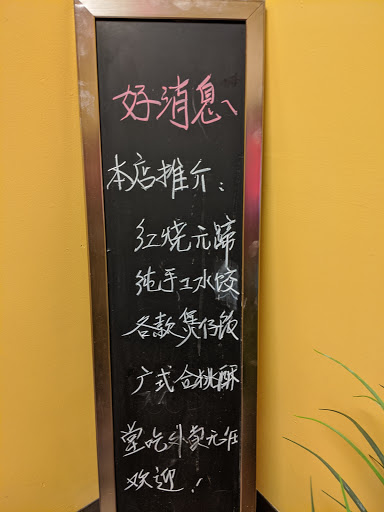 好消息、
本店推介：
红烧元蹄
纯手工水饺
各款煲仔饭
广式合桃酥
堂吃外卖无任
欢迎！